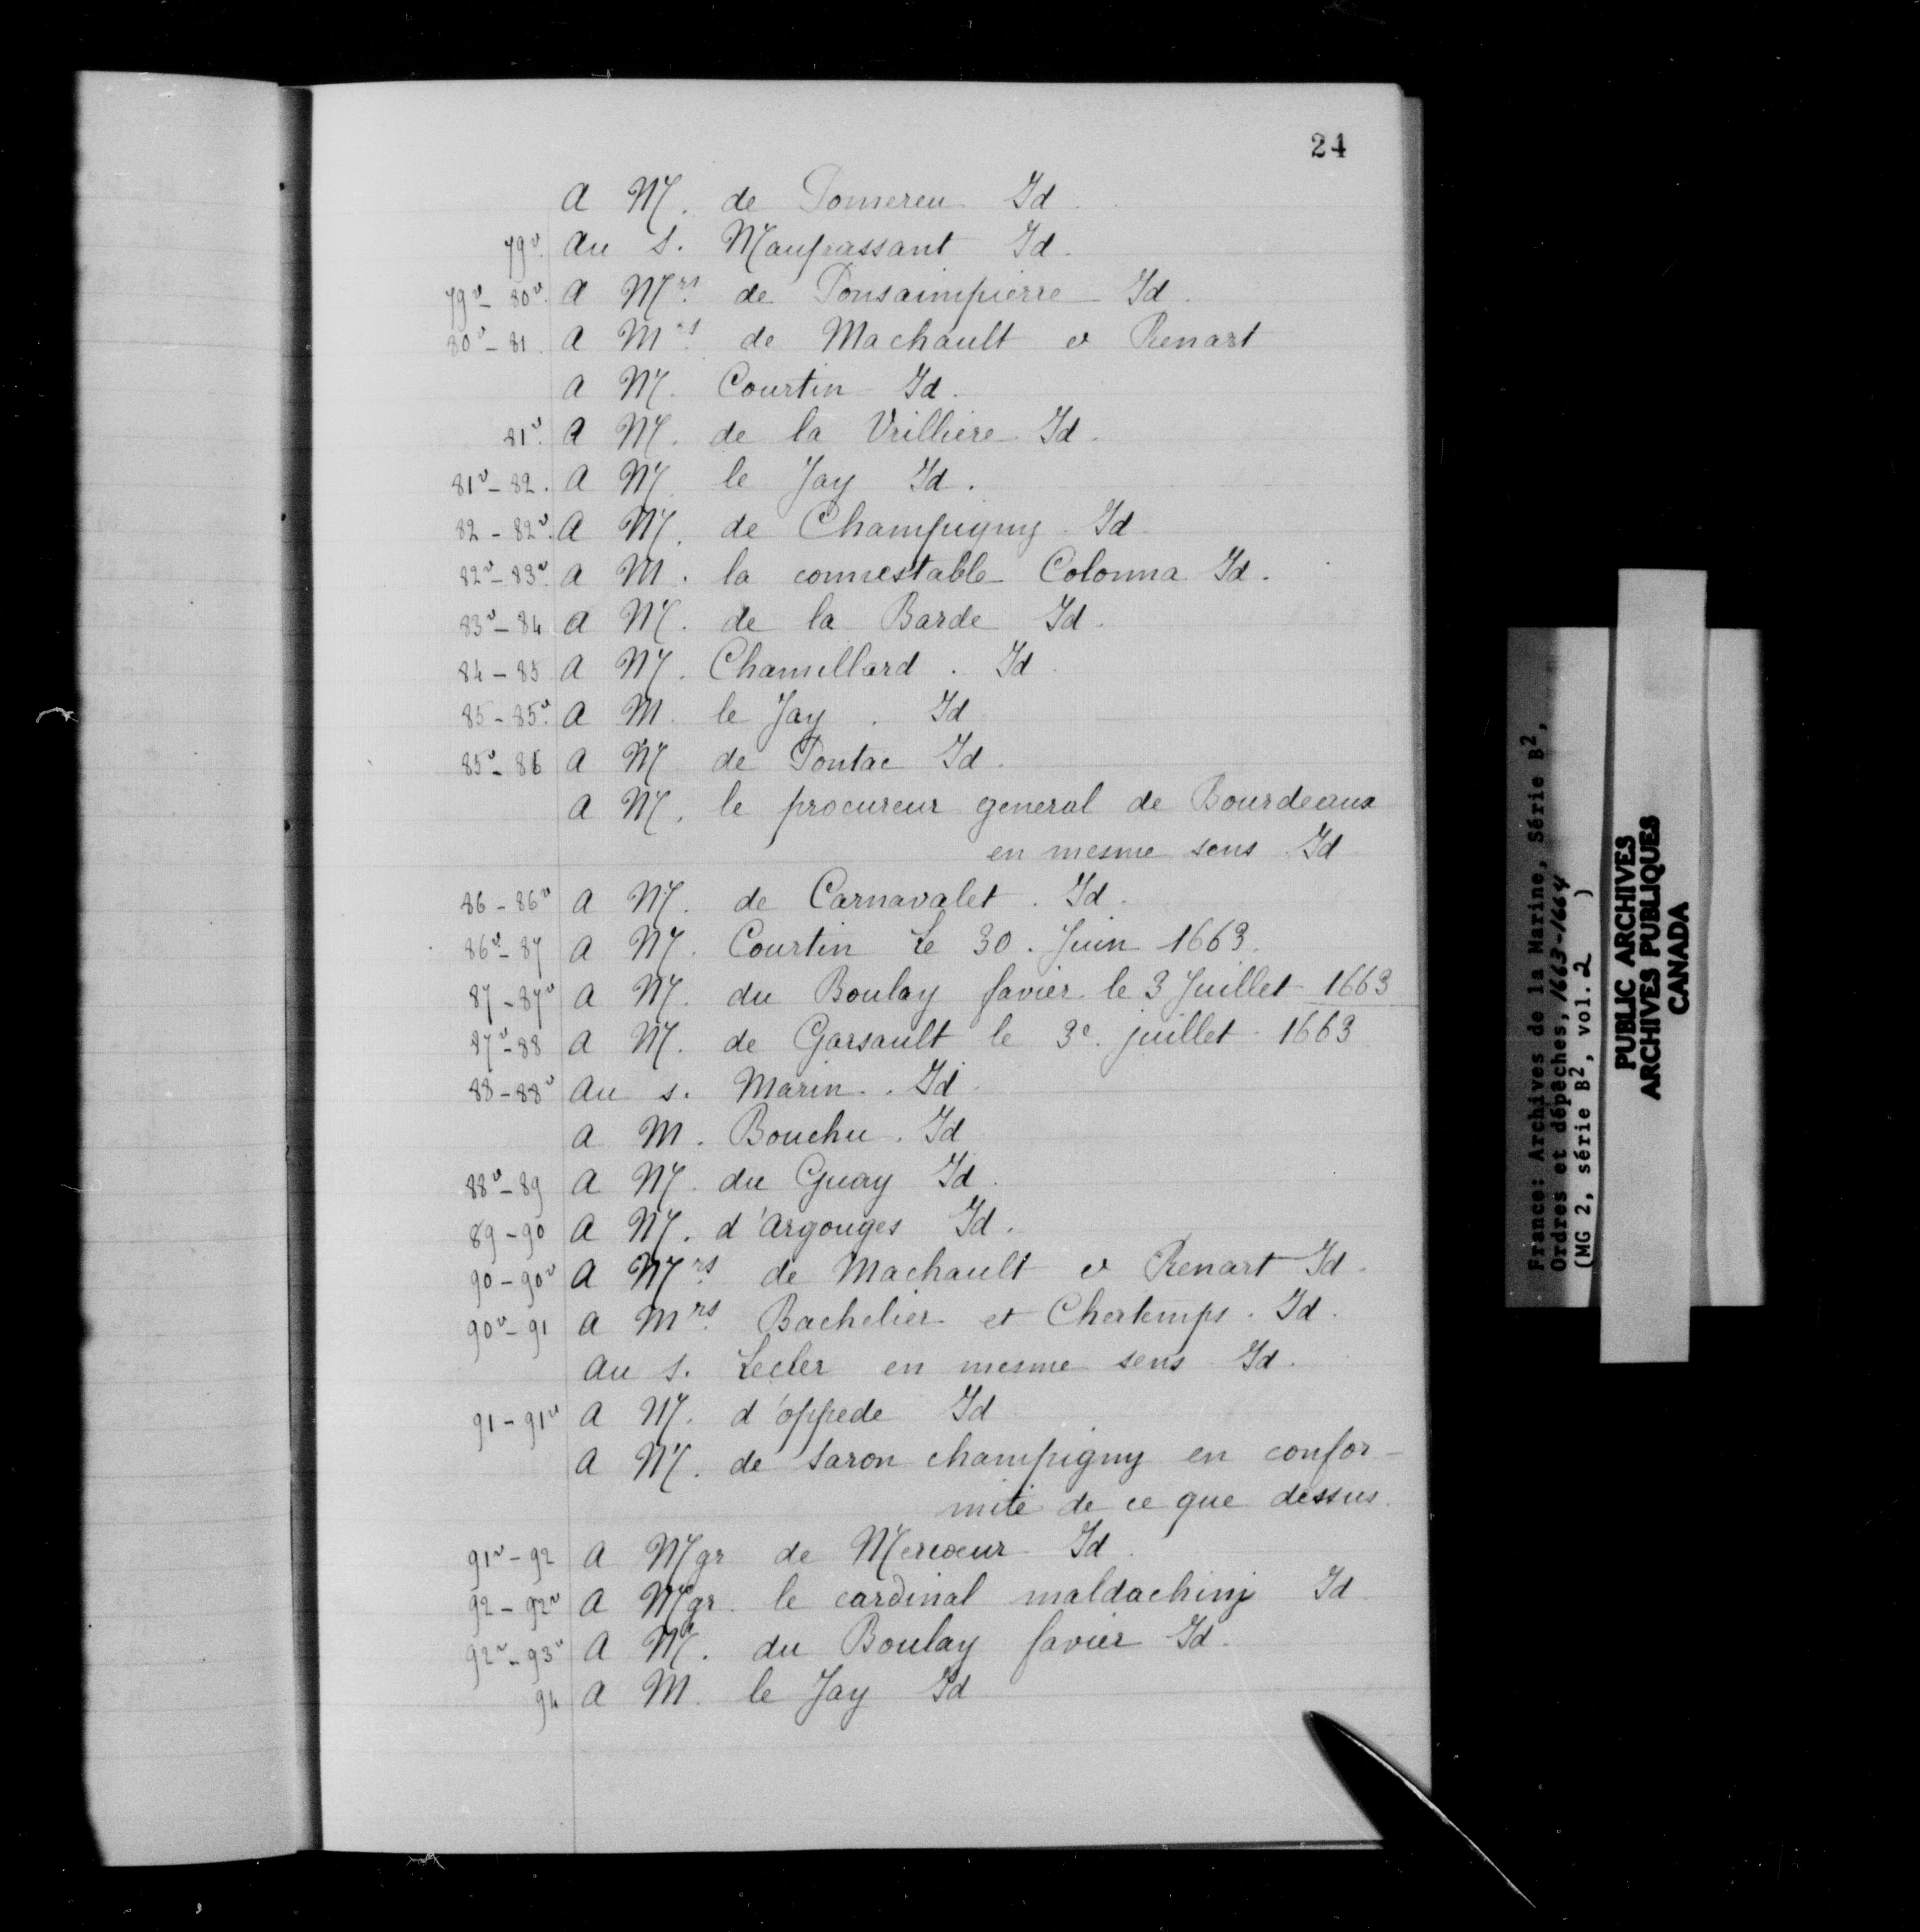 24
A M. de Pomereu Id.
79v. Au S. Maupassant Id.
79v - 80v. A Mrs. de Ponsaimpierre Id.
80v - 81. A Mrs. de Machault & Renart
A M. Courtin Id.
81v. A M. de la Vrilliere Id.
81v - 82. A M. le Jay Id.
82 - 82v. A M. de Champigny Id.
82v - 83v. A M. la connestable Colonna Id.
83v - 84 A M. de la Barde Id.
84 - 85 A M. Chamillard. Id.
85 - 85v. A M. le Jay. Id
85v - 86 A M. de Pontac Id.
A M. le procureur general de Bourdeaux
en mesme sens Id
86 - 86v A M. de Carnavalet. Id.
86v - 87 A M. Courtin Le 30. Juin 1663.
87 - 87v A M. du Boulay favier le 3 Juillet 1663
87v - 88 A M. de Garsault le 3e. juillet 1663
88 - 88v Au s. Marin. Id
A M. Bouchu. Id
88v - 89 A M. du Guay Id.
89 - 90 A M. d'Argouges Id.
90 - 90v A Mrs. de Machault & Renart Id.
90v - 91 A Mrs. Bachelier et Chertemps. Id.
Au S. Lecler en mesme sens Id.
91 - 91v A M. d'oppede Id
A M. de Saron champigny en confor-
mité de ce que dessus.
91v - 92 A Mgr de Mercœur Id.
92 - 92v A Mgr. le cardinal maldachinj Id
92v - 93v A M. du Boulay favier Id.
94 A M. le Jay Id
France: Archives de la Marine, Série B2,
Ordres et dépêches, 1663-1664
(MG 2, série B2, vol. 2 )
PUBLIC ARCHIVES
ARCHIVES PUBLIQUES
CANADA